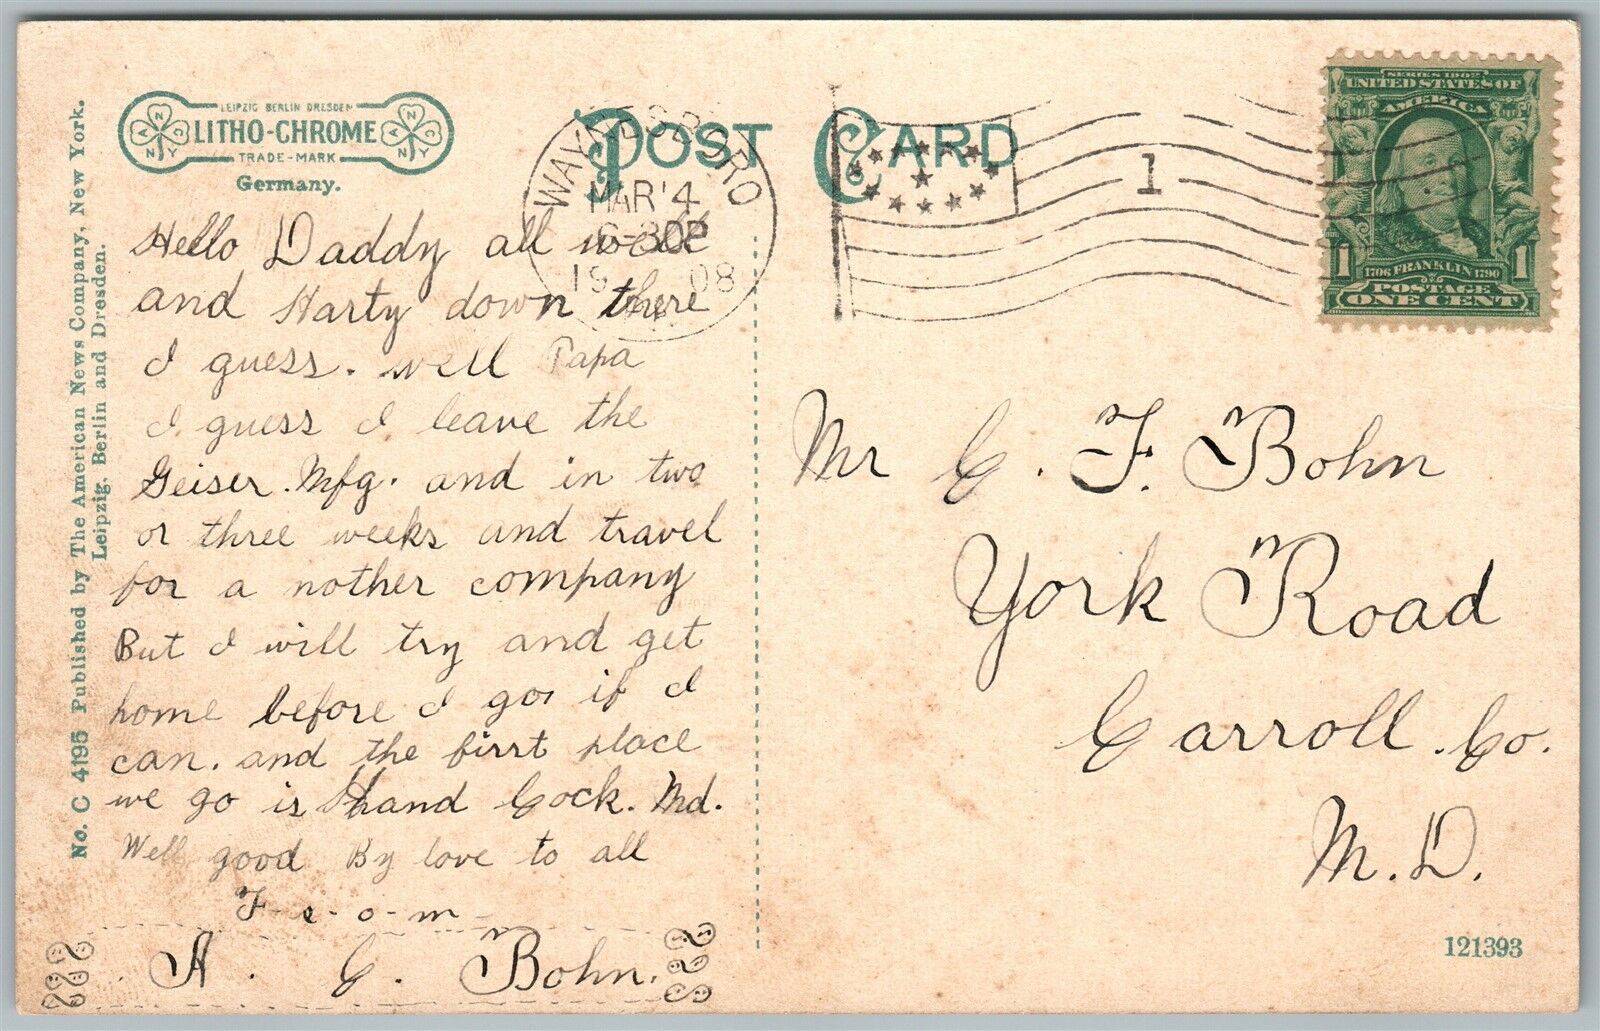 No. C 4195 Published by The American News Company, New York.
Leipzig, Berlin and Dresden.
LEIPZIG BERLIN DRESDEN
LITHO-CHROME
TRADE-MARK
Germany.
ANC
NY
ANC
NY
POST CARD
WAYNESBORO
MAR 4
6-30P
1908
PA.
1
SERIES 1902
UNITED STATES OF
AMERICA
1706 FRANKLIN 1790
1 1
POSTAGE
ONE CENT
Hello Daddy all well
and Harty down there
I guess. well Papa
I guess I leave the
Geiser Mfg. and in two
or three weeks and travel
for a nother company
But I will try and get
home before I go if I
can. and the first place
we go is Hand Cock. Md.
Well good By love to all
F-r-o-m
A. C. Bohn.
Mr C. F. Bohn
York Road
Carroll Co.
M.D.
121393